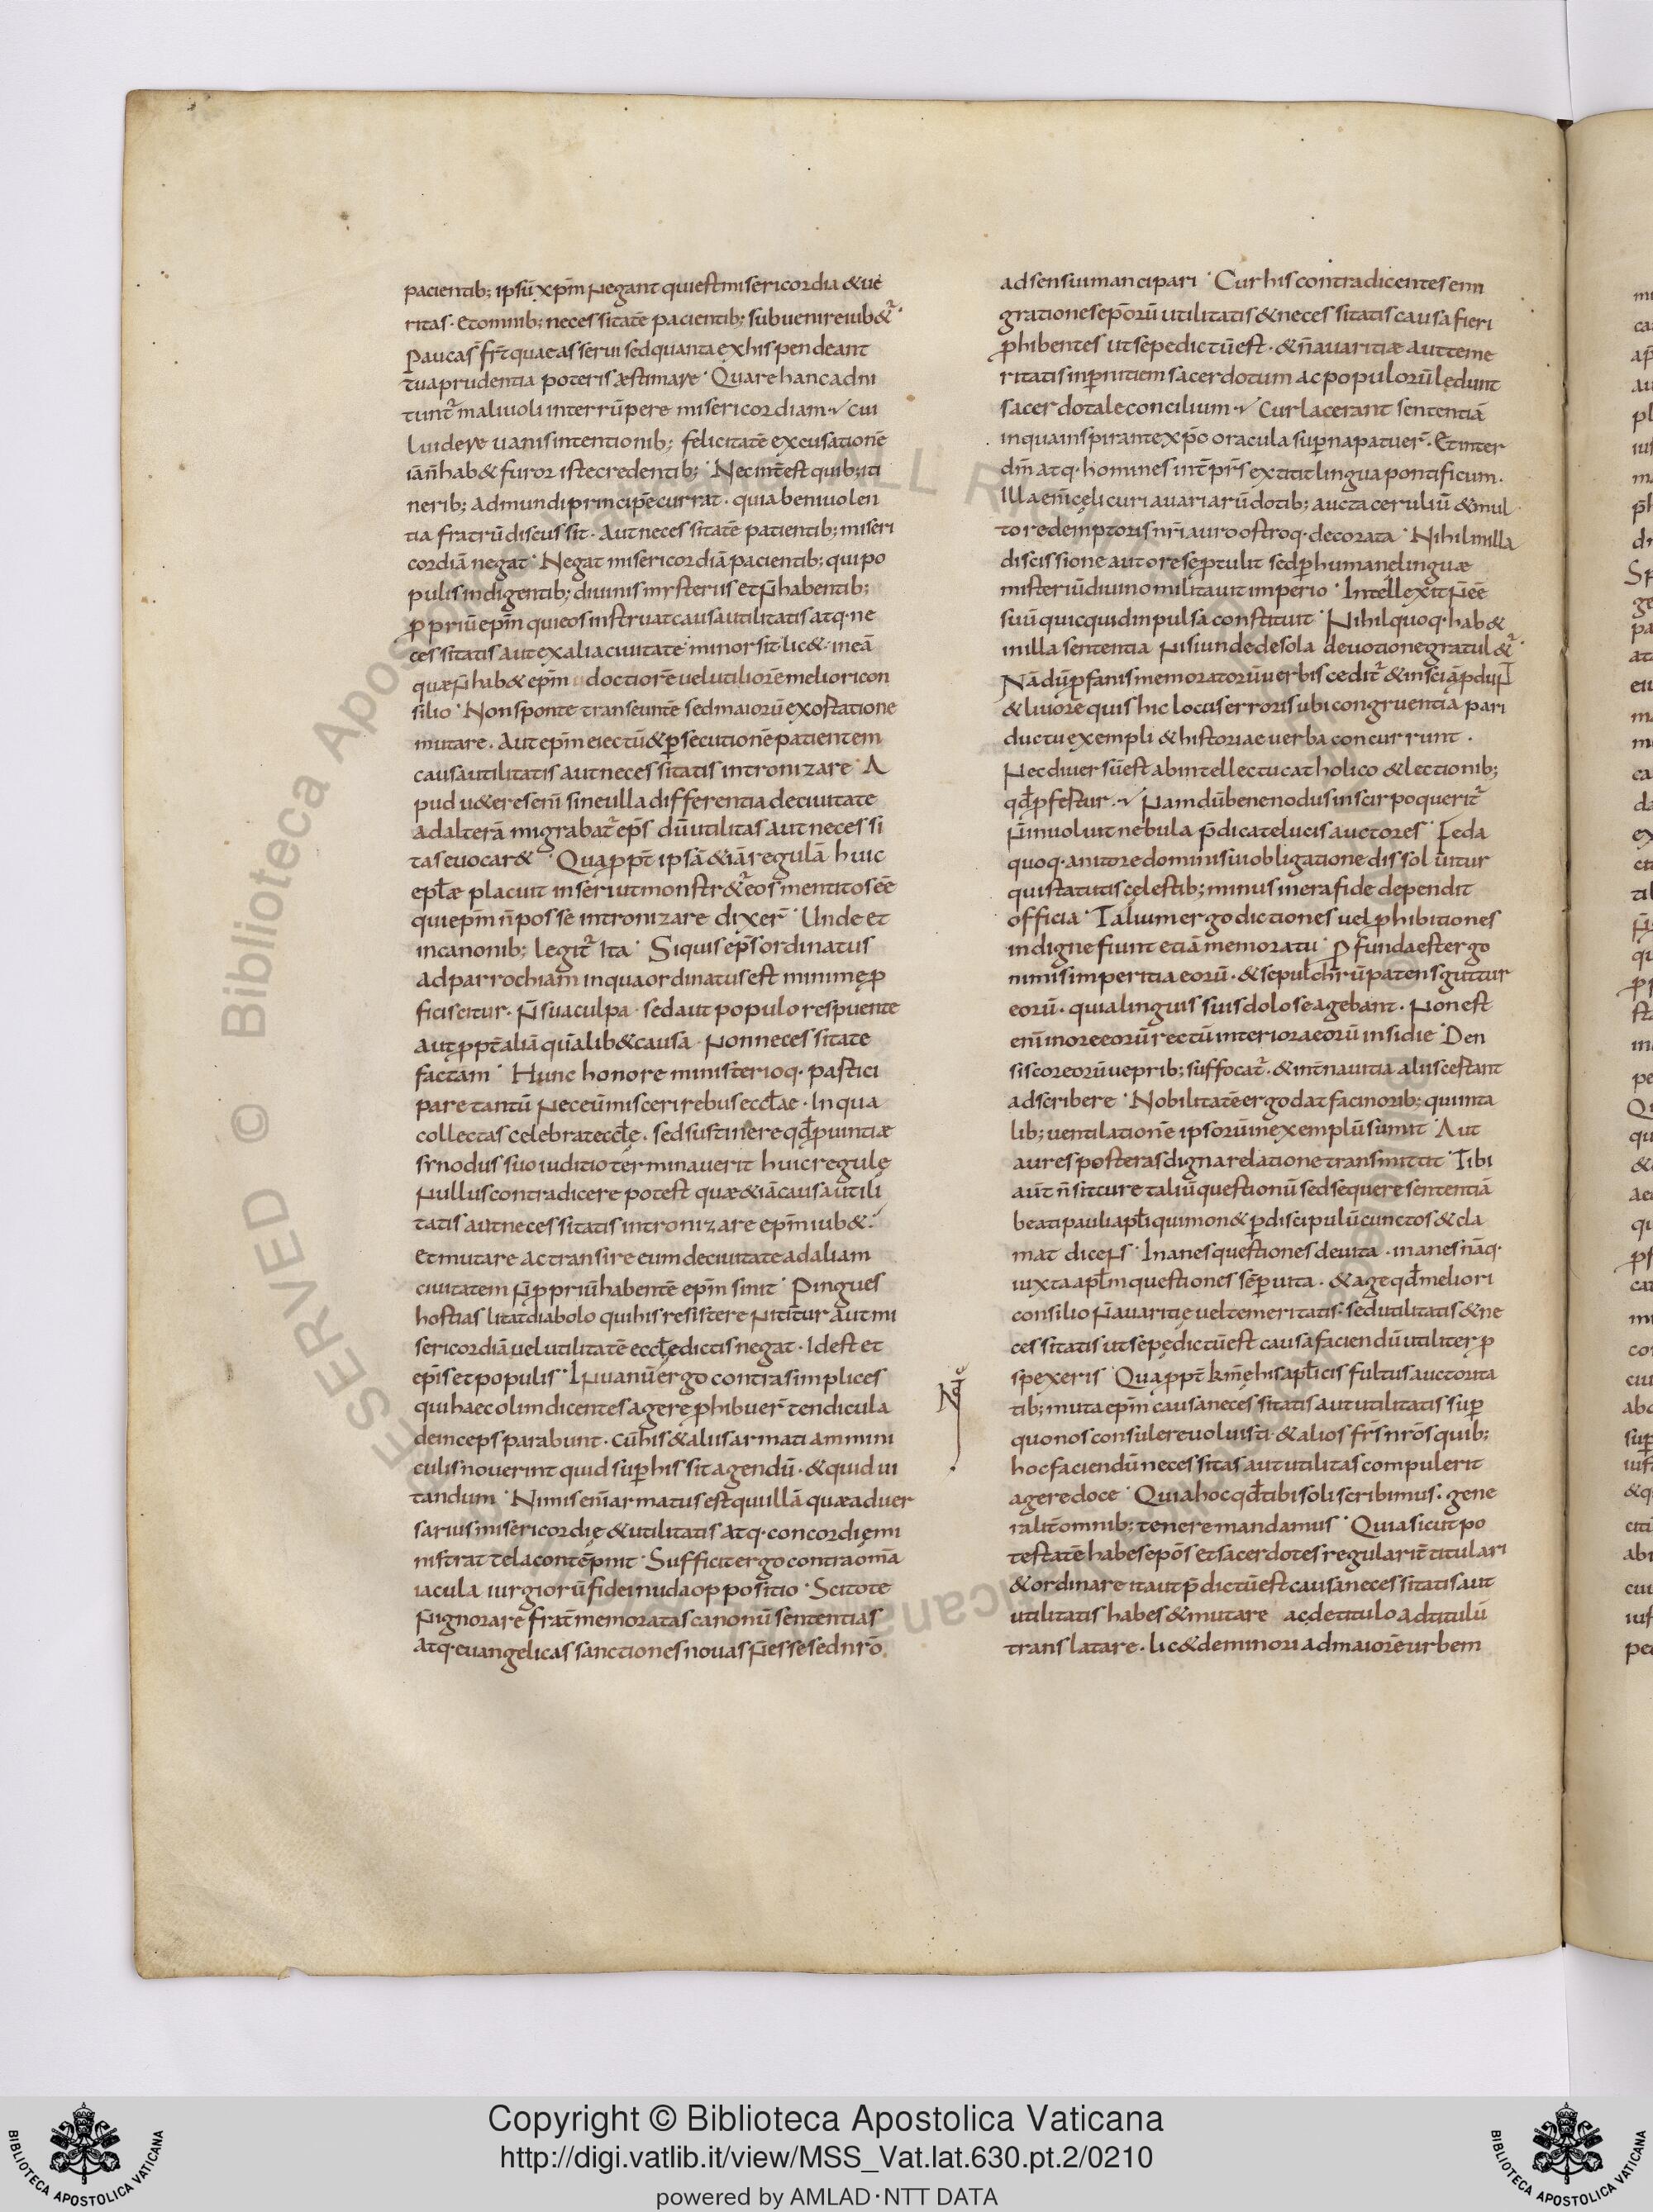 pacientib; ipsū xp̄m negant qui est misericordia & ue
ritas · et omnib; necessitatē pacientib; subuenire iub&̄ ·
Paucas fr̄t quaeas serui sed quanta ex his pendeant
tua prudentia poteris æstimare · Quare hanc adni
tunt̄ maliuoli interrūpere misericordiam · cui
luidere uanis intentionib; felicitatē excusationē
iā n̄ hab& furor iste credentib; · Nec int̄est quib; iti
nerib; ad mundi principē currat · quia beniuolen
tia fratrū discussit · Aut necessitatē patientib; miseri
cordiā negat · Negat misericordiā pacientib; qui po
pulis indigentib; diuinis mysteriis et n̄ habentib;
ꝓpriū ep̄m qui eos instruat causa utilitatis atq· ne
cessitatis aut ex alia ciuitate minor sit lic& · in eā
quæ n̄ hab& ep̄m doctiorē uel utiliorē meliori con
silio · Non sponte transeuntē sed maiorū exostatione
mutare . Aut ep̄m eiectū & ꝑsecutionē patientem
causa utilitatis aut necessitatis intronizare · A
pud u&eres enī sine ulla differentia de ciuitate
ad alterā migrabat̄ ep̄s dū utilitas aut necessi
tas euocar& · Quaꝓpt̄ ipsā & iā regulā huic
epl̄æ placuit inseri ut monstr&̄ eos mentitos eē
qui ep̄m n̄ posse intronizare dixer̄ · Unde et
in canonib; legit̄ Ita · Siquis ep̄s ordinatus
ad parrochiam in qua ordinatus est minimę ꝓ
ficiscitur · n̄ sua culpa · sed aut populo respuente
aut ꝓpt̄ aliā quālib& causā · non necessitate
factam · Hunc honore ministerioq· pastici
pare tantū nec eū misceri rebus eccl̄ae · In qua
collectas celebrat eccl̄ę . sed sustinere qd̄ ꝓuintiæ
synodus suo iuditio terminauerit huic regulę
Nullus contradicere potest quæ & iā causa utili
tatis aut necessitatis intronizare ep̄m iub& .
et mutare ac transire eum de ciuitate ad aliam
ciuitatem n̄ ꝓpriū habentē ep̄m sinit · Pingues
hostias litat diabolo qui his resistere nititur aut mi
sericordiā uel utilitatē eccl̄ę dictis negat · Id est et
ep̄is et populis · In uanū ergo contra simplices
qui haec olim dicentes agere ꝓhibuer̄ tendicula
deinceps parabunt · cū his & aliis armati ammini
culis nouerint quid suꝑ his sit agendū · & quid ui
tandum · Nimis enī armatus est qui illā quæ aduer
sarius misericordię & utilitatis atq· concordię mi
nistrat tela contēpnit · Sufficit ergo contra om̄a
iacula iurgiorū fidei nuda oppositio · Scitote
n̄ ignorare frat̄ memoratas canonū sententias
atq· euangelicas sanctiones nouas n̄ esse sed nr̄o
ad sensui mancipari · Cur his contradicentes emi
grationes ep̄orū utilitatis & necessitatis causa fieri
ꝓhibentes ut sepe dictū est · & n̄ auaritiæ aut teme
ritatis in ꝑnitiem sacerdotum ac populorū lędunt
sacerdotale concilium · Cur lacerant sententiā
in qua inspirante xp̄o oracula suꝑna patuer̄ . Et inter
dm̄ atq· homines int̄pr̄s extitit lingua pontificum .
Illa enī cęli curi auariarū dotib; aucta ceruliū & mul
to redemptoris nr̄i auro ostroq· decorata · Nihil in illa
discissione aut ore seꝑtulit sed ꝑ humane linguæ
misteriū diuino militauit imperio · Intellexit n̄ eē
suū quicquid in pulsa constituit · Nihil quoq· hab&
in illa sententia nisi unde de sola deuotione gratul&̄ ·
Nā dū ꝓfanis memoratorū uerbis cedit̄ & insciā
& liuore quis hic locus erroris ubi congruentia pari
ductu exempli & historiae uerba concurrunt .
Nec diuersū est ab intellectu catholico & lectionib;
qd̄ ꝓfestur · Nam dū bene nodus in scirpo querit̄
n̄ inuoluit nebula p̄dicate lucis auctores · Feda
quoq· anitore dominis uiobligatione dissoluitur
qui statutis cęlestib; minus mera fide dependit
officia · Talium ergo dictiones uel ꝓhibitiones
indigne fiunt etiā memoratu · Profunda est ergo
nimis imperitia eorū · & sepulchrū patens guttur
eorū · quia linguis suis dolose agebant . Non est
enī in ore eorū rectū interiora eorū insidie · Den
sis cor eorū ueprib; suffocat̄ · & int̄ nauitia aliis cestant
adscribere · Nobilitatē ergo dat facinorib; qui in ta
lib; uentilationē ipsorū in exemplū sumit · Aut
aures posteras digna relatione transmittit · Tibi
aut̄ n̄ sit cure taliū questionū sed sequere sententiā
beati pauli apl̄i qui mon& ꝑ discipulū cunctos & cla
mat dicens · Inanes questiones deuita . inanes nāq·
iuxta apl̄m questiones sēꝑ uita . & age qd̄ meliori
consilio n̄ auaritię uel temeritatis · sed utilitatis & ne
cessitatis ut sepe dictū est causa faciendū utiliter ꝓ
spexeris · Quaꝓpt̄ km̄e his apl̄icis fultus auctorita
tib; muta ep̄m causa necessitatis aut utilitatis suꝑ
quo nos consulere uoluisti · & alios fr̄s nr̄os quib;
hoc faciendū necessitas aut utilitas compulerit
agere doce · Quia hoc qd̄ tibi soli scribimus · gene
ralit̄ omnib; tenere mandamus · Quia sicut po
testatē habes ep̄os et sacerdotes regularit̄ titulari
& ordinare ita ut p̄dictū est causa necessitatis aut
utilitatis habes & mutare ac de titulo ad titulū
translatare . lic& de minori ad maiorē urbem
Copyright © Biblioteca Apostolica Vaticana
http://digi.vatlib.it/view/MSS_Vat.lat.630.pt.2/0210
powered by AMLAD·NTT DATA
BIBLIOTECA APOSTOLICA VATICANA
BIBLIOTECA APOSTOLICA VATICANA